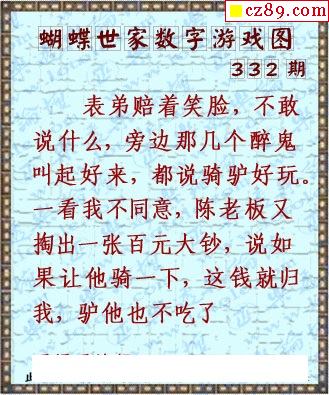 cz89.com
蝴蝶世家数字游戏图
332期
表弟赔着笑脸，不敢
说什么，旁边那几个醉鬼
叫起好来，都说骑驴好玩。
一看我不同意，陈老板又
掏出一张百元大钞，说如
果让他骑一下，这钱就归
我，驴他也不吃了